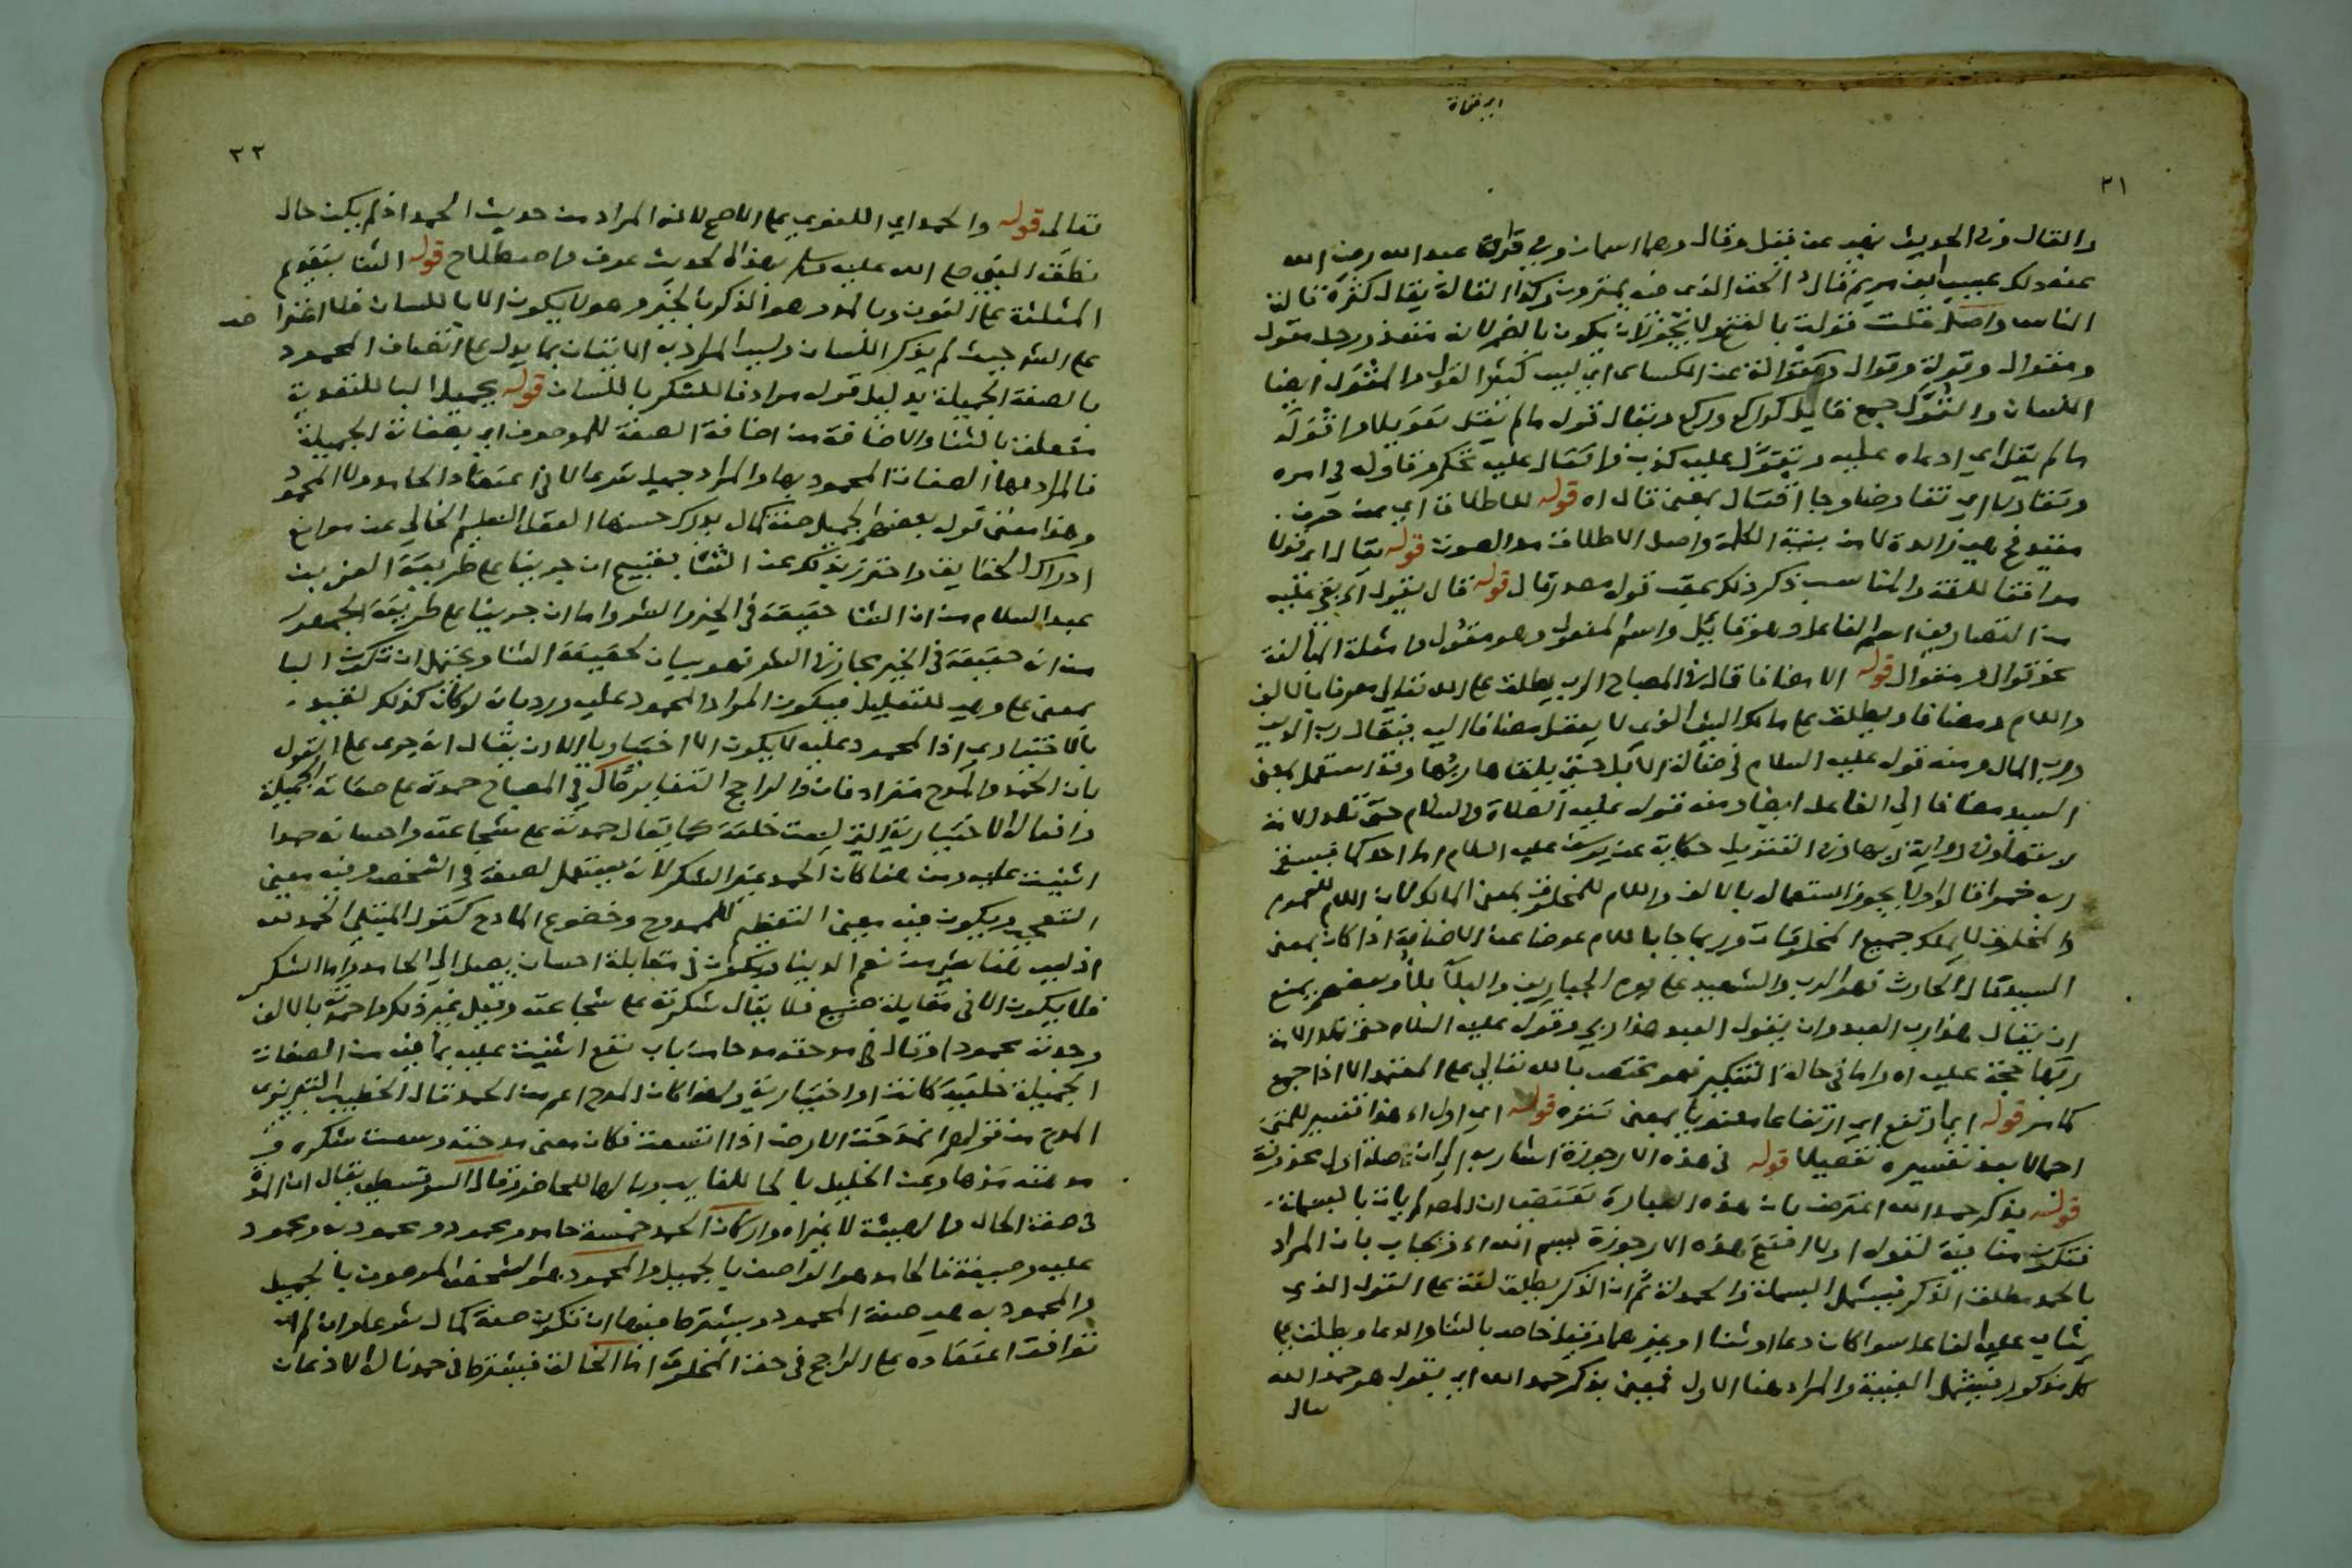 ابي قحافة
٢١
والقال وفي الحديث نهي عن قيل وقال وهما اسمان وفي قراءة عبد الله رضي الله
عنه ذلك عيسى ابن مريم قال الحق الذي فيه يمترون وكذا القالة يقال كثرة قالة
الناس واصل قلت قولت بالفتح ولا يجوز ان يكون بالضم لانه متعد ورجل مقول
ومقوال وقولة وقوال وتقوالة عن الكسائي اي لسن كثير القول والمقول ايضا
اللسان والقول جمع قايل كراكع وركع ويقال قوله ما لم يقل تقويلا واقوله
ما لم يقل اي ادعاه عليه وتقول عليه كذب واقتال عليه تحكم وقاوله في امره
وتقاولا اي تفاوضا وجا اقتال بمعنى قال اه قوله للاطلاق اي من حرف
موافقا للغة والمناسب ذكر ذلك عقب قوله مصدر قال قوله قال يقول
من التصاريف اسم الفاعل وهو قائل واسم المفعول وهو مقول وامثلة المبالغة
نحو قوال ومقوال قوله الا مضافا قال في المصباح الرب يطلق على الله تعالى معرفا بالالف
واللام ومضافا ويطلق على مالك الشئ الذي لا يعقل مضافا اليه فيقال رب الدين
ورب المال ومنه قوله عليه السلام في ضالة الابل حتى يلقاها ربها وقد استعمل بمعنى
السيد مضافا الى العاقل ايضا ومنه قوله عليه الصلاة والسلام حتى تلد الامة
ربتها وفي رواية ربها وفي التنزيل حكاية عن يوسف عليه السلام اما احدكما فيسقي
ربه خمرا قالوا ولا يجوز استعماله بالالف واللام للمخلوق بمعنى المالك لان اللام للعموم
والمخلوق لا يملك جميع المخلوقات وربما جا باللام عوضا عن الاضافة اذا كان بمعنى
السيد قال الحارث فهو الرب والشهيد على يوم الحيارين والبلاء بلاء وبعضهم يمنع
ان يقال هذا رب العبد وان يقول العبد هذا ربي وقوله عليه السلام حتى تلد الامة
ربها حجة عليه اه واما في حالة التنكير فهو مختص بالله تعالى على المعتمد الا اذا جمع
كما مر قوله اي ارتفع اي ارتفاعا معنويا بمعنى تنزه قوله اي اولا هذا تفسير للمتن
اجمالا بعد تفسيره تفصيلا قوله في هذه الارجوزة اشار به الى ان صلة اول محذوفة
قوله بذكر حمد الله اعترض بان هذه العبارة تقتضي ان المصنف لم يات بالبسملة
فتكون منافية لقوله اولا افتتح هذه الارجوزة ببسم الله ويجاب بان المراد
بالحمد مطلق الذكر فيشمل البسملة والحمدلة ثم ان الذكر يطلق لغة على القول الذي
يثاب عليه الفاعل سوا كان دعا او ثنا او غيرهما وقيل خاص بالثنا والدعا ويطلق على
كل مذكور فيشمل الغيبة والمراد هنا الاول فمعنى بذكر حمد الله اي بقول هو حمد الله
تعالى
٢٢
تعالى قوله والحمد اي اللغوي على الاصح لانه المراد من حديث الحمد اذ لم يكن حال
نطق النبي صلى الله عليه وسلم بهذا الحديث عرف واصطلاح قوله الثنا بتقديم
المثلثة على النون وبالمد وهو الذكر بالخير وهو لا يكون الا باللسان
حيث لم يذكر اللسان وليس المراد به الاتيان بما يدل على اتصاف المحمود
بالصفة الجميلة بدليل قوله مرادفا للشكر باللسان قوله بجميل البا للتعدية
متعلقة بالثنا والاضافة من اضافة الصفة للموصوف اي بصفاته الجميلة
فالمراد بها الصفات المحمود بها والمراد جميل شرعا لا في اعتقاد الحامد ولا المحمود
وهذا معنى قول بعضهم الجميل صفة كمال يدرك حسنها العقل السليم الخالي عن موانع
ادراك الحقايق واحترز بذلك عن الثنا بقبيح ان جرينا على طريقة العز بن
عبد السلام من ان الثنا حقيقة في الخير والشر واما ان جرينا على طريقة الجمهور
من انه حقيقة في الخير مجاز في الشر فهو بيان لحقيقة الثنا ويحتمل ان تكون البا
بمعنى على وهي للتعليل فيكون المراد المحمود عليه ورد بانه لو كان كذلك لقيده
بالاختياري اذ المحمود عليه لا يكون الا اختياريا الا ان يقال انه جرى على القول
بان الحمد والمدح مترادفان والراجح التغاير قال في المصباح حمدته على صفاته الجميلة
وافعاله الاختيارية التي ليست خلقة كما يقال حمدته على شجاعته واحسانه حمدا
اثنيت عليه ومن هنا كان الحمد غير الشكر لانه يستعمل لصفة في الشخص وفيه معنى
التعجب ويكون فيه معنى التعظيم للممدوح وخضوع المادح كقول المبتلى الحمد لله
اذ ليس هنا شئ من نعم الدنيا ويكون في مقابلة احسان يصل الى الحامد واما الشكر
فلا يكون الا في مقابلة صنيع فلا يقال شكرته على شجاعته وقيل غير ذلك واحمدته بالالف
وجدته محمودا وقال في مدحته مدحا من باب نفع اثنيت عليه بما فيه من الصفات
الجميلة خلقية كانت او اختيارية ولهذا كان المدح اعم من الحمد قال الخطيب التبريزي
المدح من قولهم انمدحت الارض اذا اتسعت فكان معنى مدحته وسعت شكره و
مدهته مدها وعن الخليل بالحا للغايب وبالها للحاضر وقال السرقسطي يقال ان المده
في صفة الحال والهيئة لا غير اه واركان الحمد خمسة حامد ومحمود ومحمود به ومحمود
عليه وصيغة فالحامد هو الواصف بالجميل والمحمود هو الشخص الموصوف بالجميل
والمحمود به هي صفة المحمود ويشترط فيها ان تكون صفة كمال شرعا وان لم
توافق اعتقاده على الراجح في حق المخلوق اما الخالق فيشترط في حمدنا له الاذعان